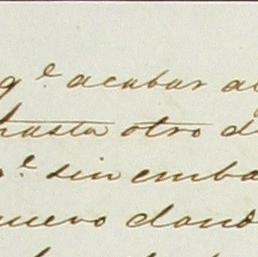 q.e acabar a
hasta otro d
o.e sin emba
nuevo dond